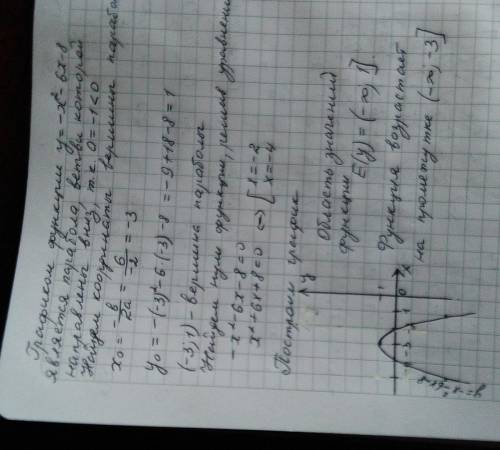 Графиком функции y = -x²-6x-8
является парабола, ветви которой
направлены вниз, т.к. a = -1 < 0
Найдем координаты вершины параболы
x₀ = -b/2a = 6/-2 = -3
y₀ = -(-3)²-6·(-3)-8 = -9+18-8 = 1
(-3; 1) - вершина параболы
Найдем нули функции, решив уравнение
-x²-6x-8=0
x²+6x+8=0 ⇔ [ x=-2
x=-4
Построим график
Область значений
функции E(y) = (-∞; 1]
Функция возрастает
на промежутке (-∞; -3]
y
x
0
1
-3